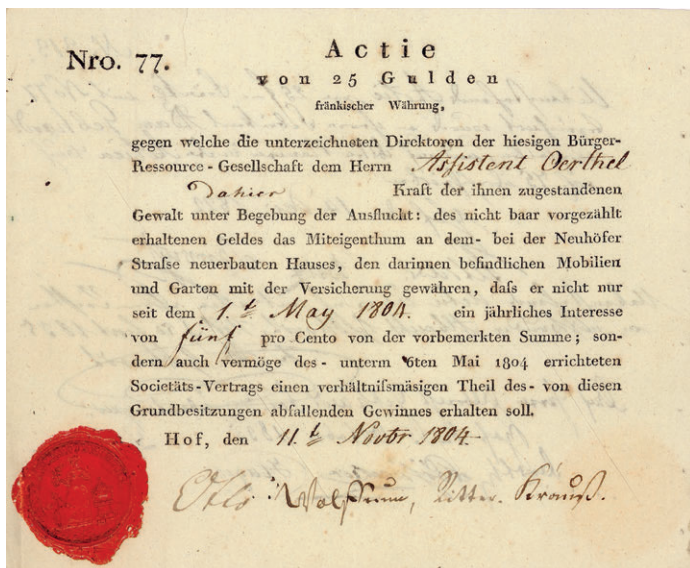 Nro. 77.
Actie
von 25 Gulden
fränkischer Währung,
gegen welche die unterzeichneten Direktoren der hiesigen Bürger-
Ressource-Gesellschaft dem Herrn Assistent Oerthel
dahier Kraft der ihnen zugestandenen
Gewalt unter Begebung der Ausflucht: des nicht baar vorgezählt
erhaltenen Geldes das Miteigenthum an dem- bei der Neuhöfer
Straſse neuerbauten Hauses, den darinnen befindlichen Mobilien
und Garten mit der Versicherung gewähren, daſs er nicht nur
seit dem 1.t May 1804. ein jährliches Interesse
von fünf pro Cento von der vorbemerkten Summe; son-
dern auch vermöge des- unterm 6ten Mai 1804 errichteten
Societäts-Vertrags einen verhältniſsmäsigen Theil des- von diesen
Grundbesitzungen abfallenden Gewinnes erhalten soll.
Hof, den 11.t Novbr 1804.
Wolffrum, Ritter. Krauß.